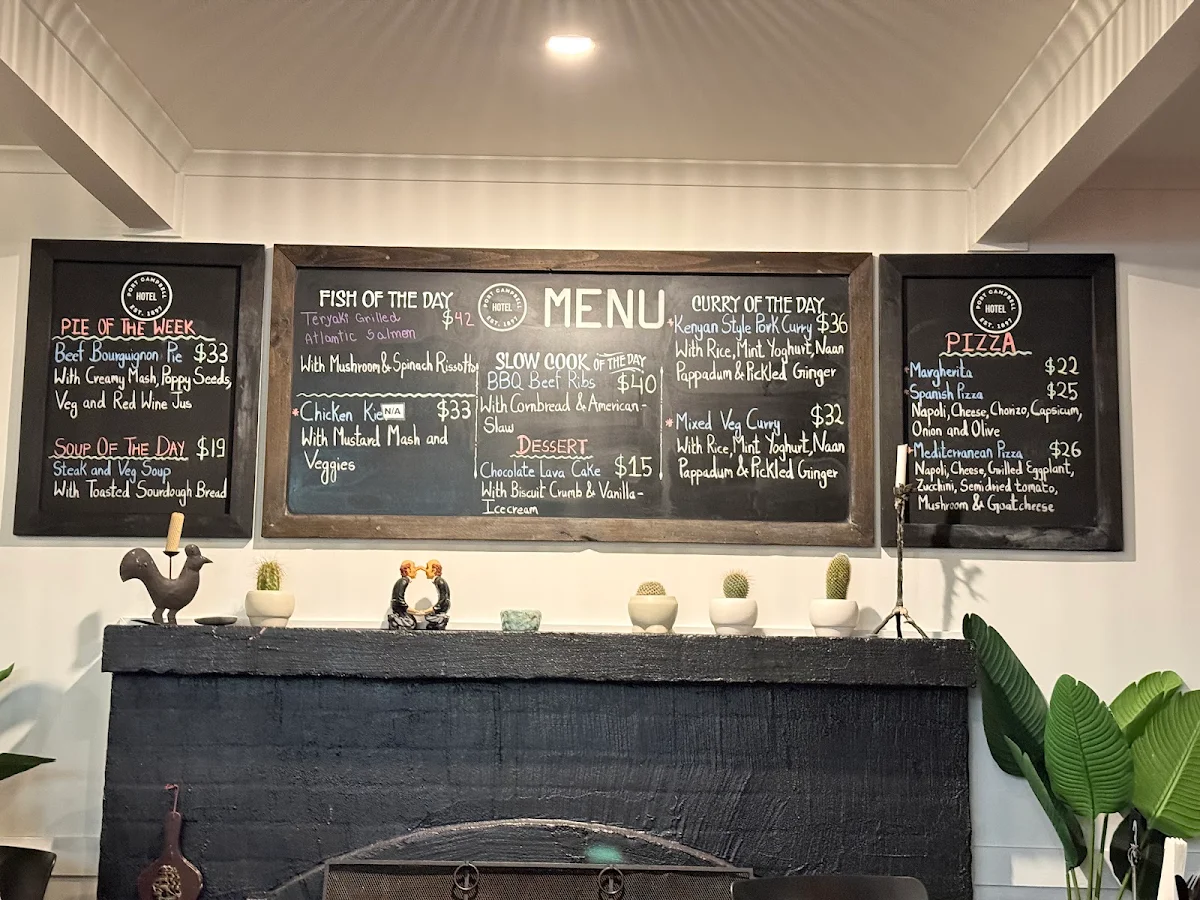 PORT CAMPBELL
HOTEL
EST. 1897
PIE OF THE WEEK
Beef Bourguignon Pie $33
With Creamy Mash, Poppy Seeds,
Veg and Red Wine Jus
SOUP OF THE DAY $19
Steak and Veg Soup
With Toasted Sourdough Bread
FISH OF THE DAY
Teryaki Grilled $42
Atlantic Salmon
With Mushroom & Spinach Rissotto
*Chicken Kie N/A $33
With Mustard Mash and
Veggies
PORT CAMPBELL
HOTEL
EST. 1897
MENU
SLOW COOK OF THE DAY
BBQ Beef Ribs $40
With Cornbread & American-
Slaw
DESSERT
Chocolate Lava Cake $15
With Biscuit Crumb & Vanilla-
Icecream
CURRY OF THE DAY
*Kenyan Style Pork Curry $36
With Rice, Mint Yoghurt, Naan
Pappadum & Pickled Ginger
*Mixed Veg Curry $32
With Rice, Mint Yoghurt, Naan
Pappadum & Pickled Ginger
PORT CAMPBELL
HOTEL
EST. 1897
PIZZA
*Margherita $22
*Spanish Pizza $25
Napoli, Cheese, Chorizo, Capsicum,
Onion and Olive
*Mediterranean Pizza $26
Napoli, Cheese, Grilled Eggplant,
Zucchini, Semidried tomato,
Mushroom & Goatcheese